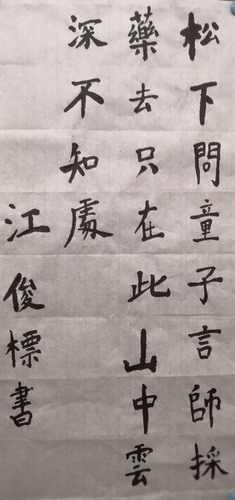 松下問童子言師採
藥去只在此山中雲
深不知處
江俊標書